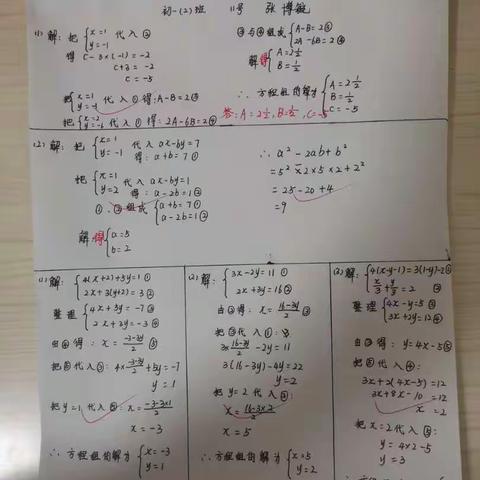 初一(2)班 11号 张博毓
(1) 解: 把 {x=1 y=-1 代入②
得 C-3×(-1)=-2
C+3 = -2
C = -5
把 {x=1 y=-1 代入①得: A-B=2③
把 {x=2 y=-6 代入①得: 2A-6B=2④
③与④组成 {A-B=2③ 2A-6B=2④
解得 {A=2½ B=½
∴方程组的解为 {A=2½ B=½ C=-5
答: A=2½, B=½, C=-5
(2) 解: 把 {x=1 y=-1 代入 ax-by=7
得: a+b=7①
把 {x=1 y=2 代入 ax-by=1
得: a-2b=1②
①,②组成 {a+b=7① a-2b=1②
解得 {a=5 b=2
∴ a²-2ab+b²
=5²-2×5×2+2²
=25-20+4
=9
(1) 解: {4(x+2)+5y=1① 2x+3(y+2)=3②
整理 {4x+5y=-7③ 2x+3y=-3④
由④得: x=(-3-3y)/2 ⑤
把⑤代入③: 4×(-3-3y)/2+5y=-7
y=1
把 y=1 代入⑤: x=(-3-3×1)/2
x=-3
∴方程组的解为 {x=-3 y=1
(2) 解: {3x-2y=11① 2x+3y=16②
由②得: x=(16-3y)/2 ③
把③代入①:
3×(16-3y)/2-2y=11
3(16-3y)-4y=22
y=2
把 y=2 代入③:
x=(16-3×2)/2
x=5
∴方程组的解为 {x=5 y=2
(3) 解: {4(x-y-1)=3(1-y)-2① x/3+y/2=2②
整理 {4x-y=5③ 3x+2y=12④
由③得: y=4x-5⑤
把⑤代入④:
3x+2(4x-5)=12
3x+8x-10=12
x=2
把 x=2 代入⑤:
y=4×2-5
y=3